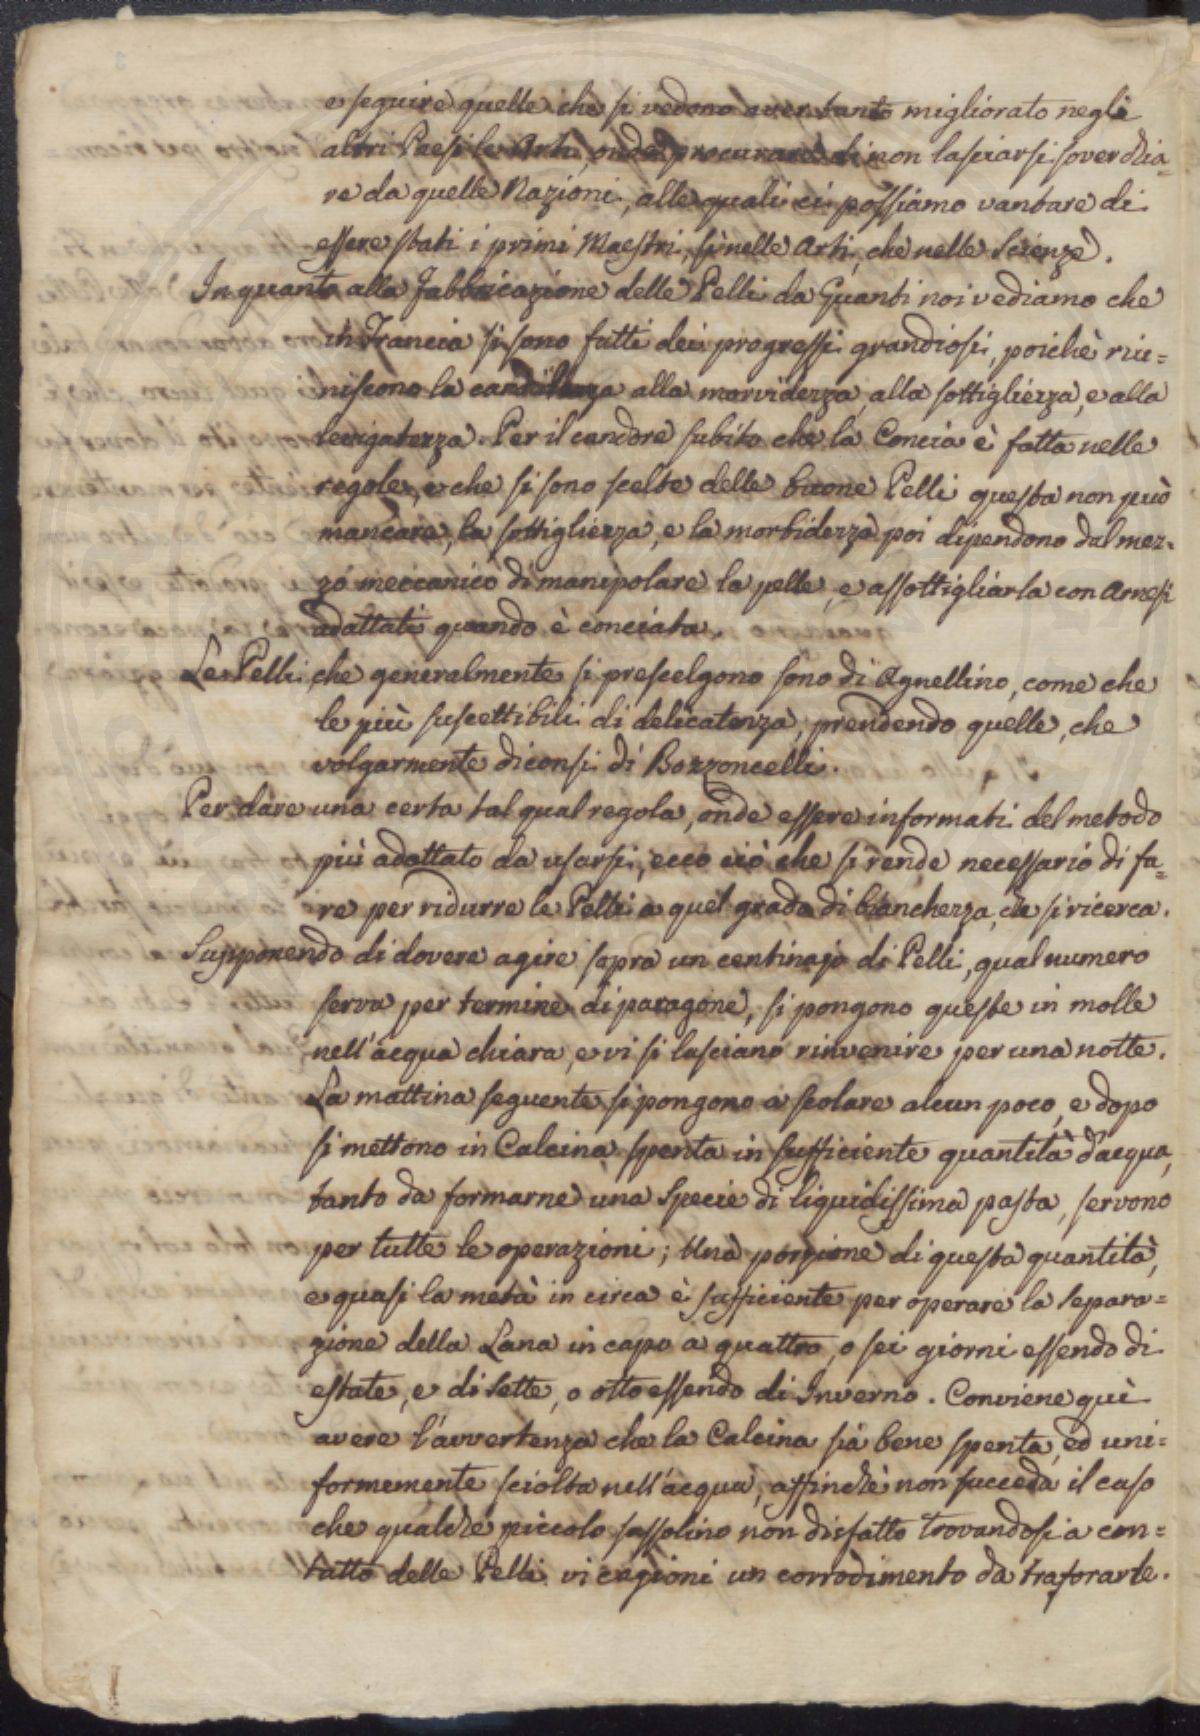 e seguire quelle che si vedono aver tanto migliorato negli
altri Paesi le Arti, onde procurare di non lasciarsi soverchia=
re da quelle Nazioni, alle quali ci possiamo vantare di
essere stati i primi Maestri, sì nelle Arti, che nelle Scienze.
In quanto alla Fabbricazione delle Pelli da Guanti noi vediamo che
in Francia si sono fatti dei progressi grandiosi, poichè riu=
niscono la candidezza alla morvidezza, alla sottigliezza, e alla
levigatezza. Per il candore subito che la Concia è fatta nelle
regole, e che si sono scelte delle buone Pelli questa non può
mancare, la sottigliezza, e la morbidezza poi dipendono dal mez=
zo meccanico di manipolare la pelle, e assottigliarla con Arnesi
adattati quando è conciata.
Le Pelli che generalmente si prescelgono sono di Agnellino, come che
le più suscettibili di delicatezza, prendendo quelle, che
volgarmente diconsi di Bozzoncelli.
Per dare una certa tal qual regola, onde essere informati del metodo
più adattato da usarsi, ecco ciò che si rende necessario di fa=
re per ridurre le Pelli a quel grado di bianchezza, che si ricerca.
Supponendo di dovere agire sopra un centinajo di Pelli, qual numero
serva per termine di paragone, si pongono queste in molle
nell'acqua chiara, e vi si lasciano rinvenire per una notte.
La mattina seguente si pongono a scolare alcun poco, e dopo
si mettono in Calcina spenta in sufficiente quantità d'acqua,
tanto da formarne una specie di liquidissima pasta, servono
per tutte le operazioni; Una porzione di questa quantità,
e quasi la metà in circa è sufficiente per operare la separa=
zione della Lana in capo a quattro, o sei giorni essendo di
estate, e di sette, o otto essendo di Inverno. Conviene quì
avere l'avvertenza che la Calcina sia bene spenta, ed uni=
formemente sciolta nell'acqua, affinchè non succeda il caso
che qualche piccolo sassolino non disfatto trovandosi a con=
tatto delle Pelli vi cagioni un corrodimento da traforarle.